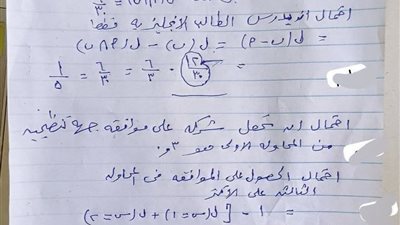 احتمال ان يدرس الطالب الانجليزية فقط
= ل(ب - P) = ل(ب) - ل(P ∩ ب)
= ١٢/٣٠ - ٦/٣٠ = ٦/٣٠ = ١/٥
احتمال ان تحصل شركة على موافقة جهة تنظيمية
من المحاولة الاولى هو ٣و.
احتمال الحصول على الموافقة فى المحاولة
الثالثة على الأكثر
= ١ - [ل(س=١) + ل(س=٢)